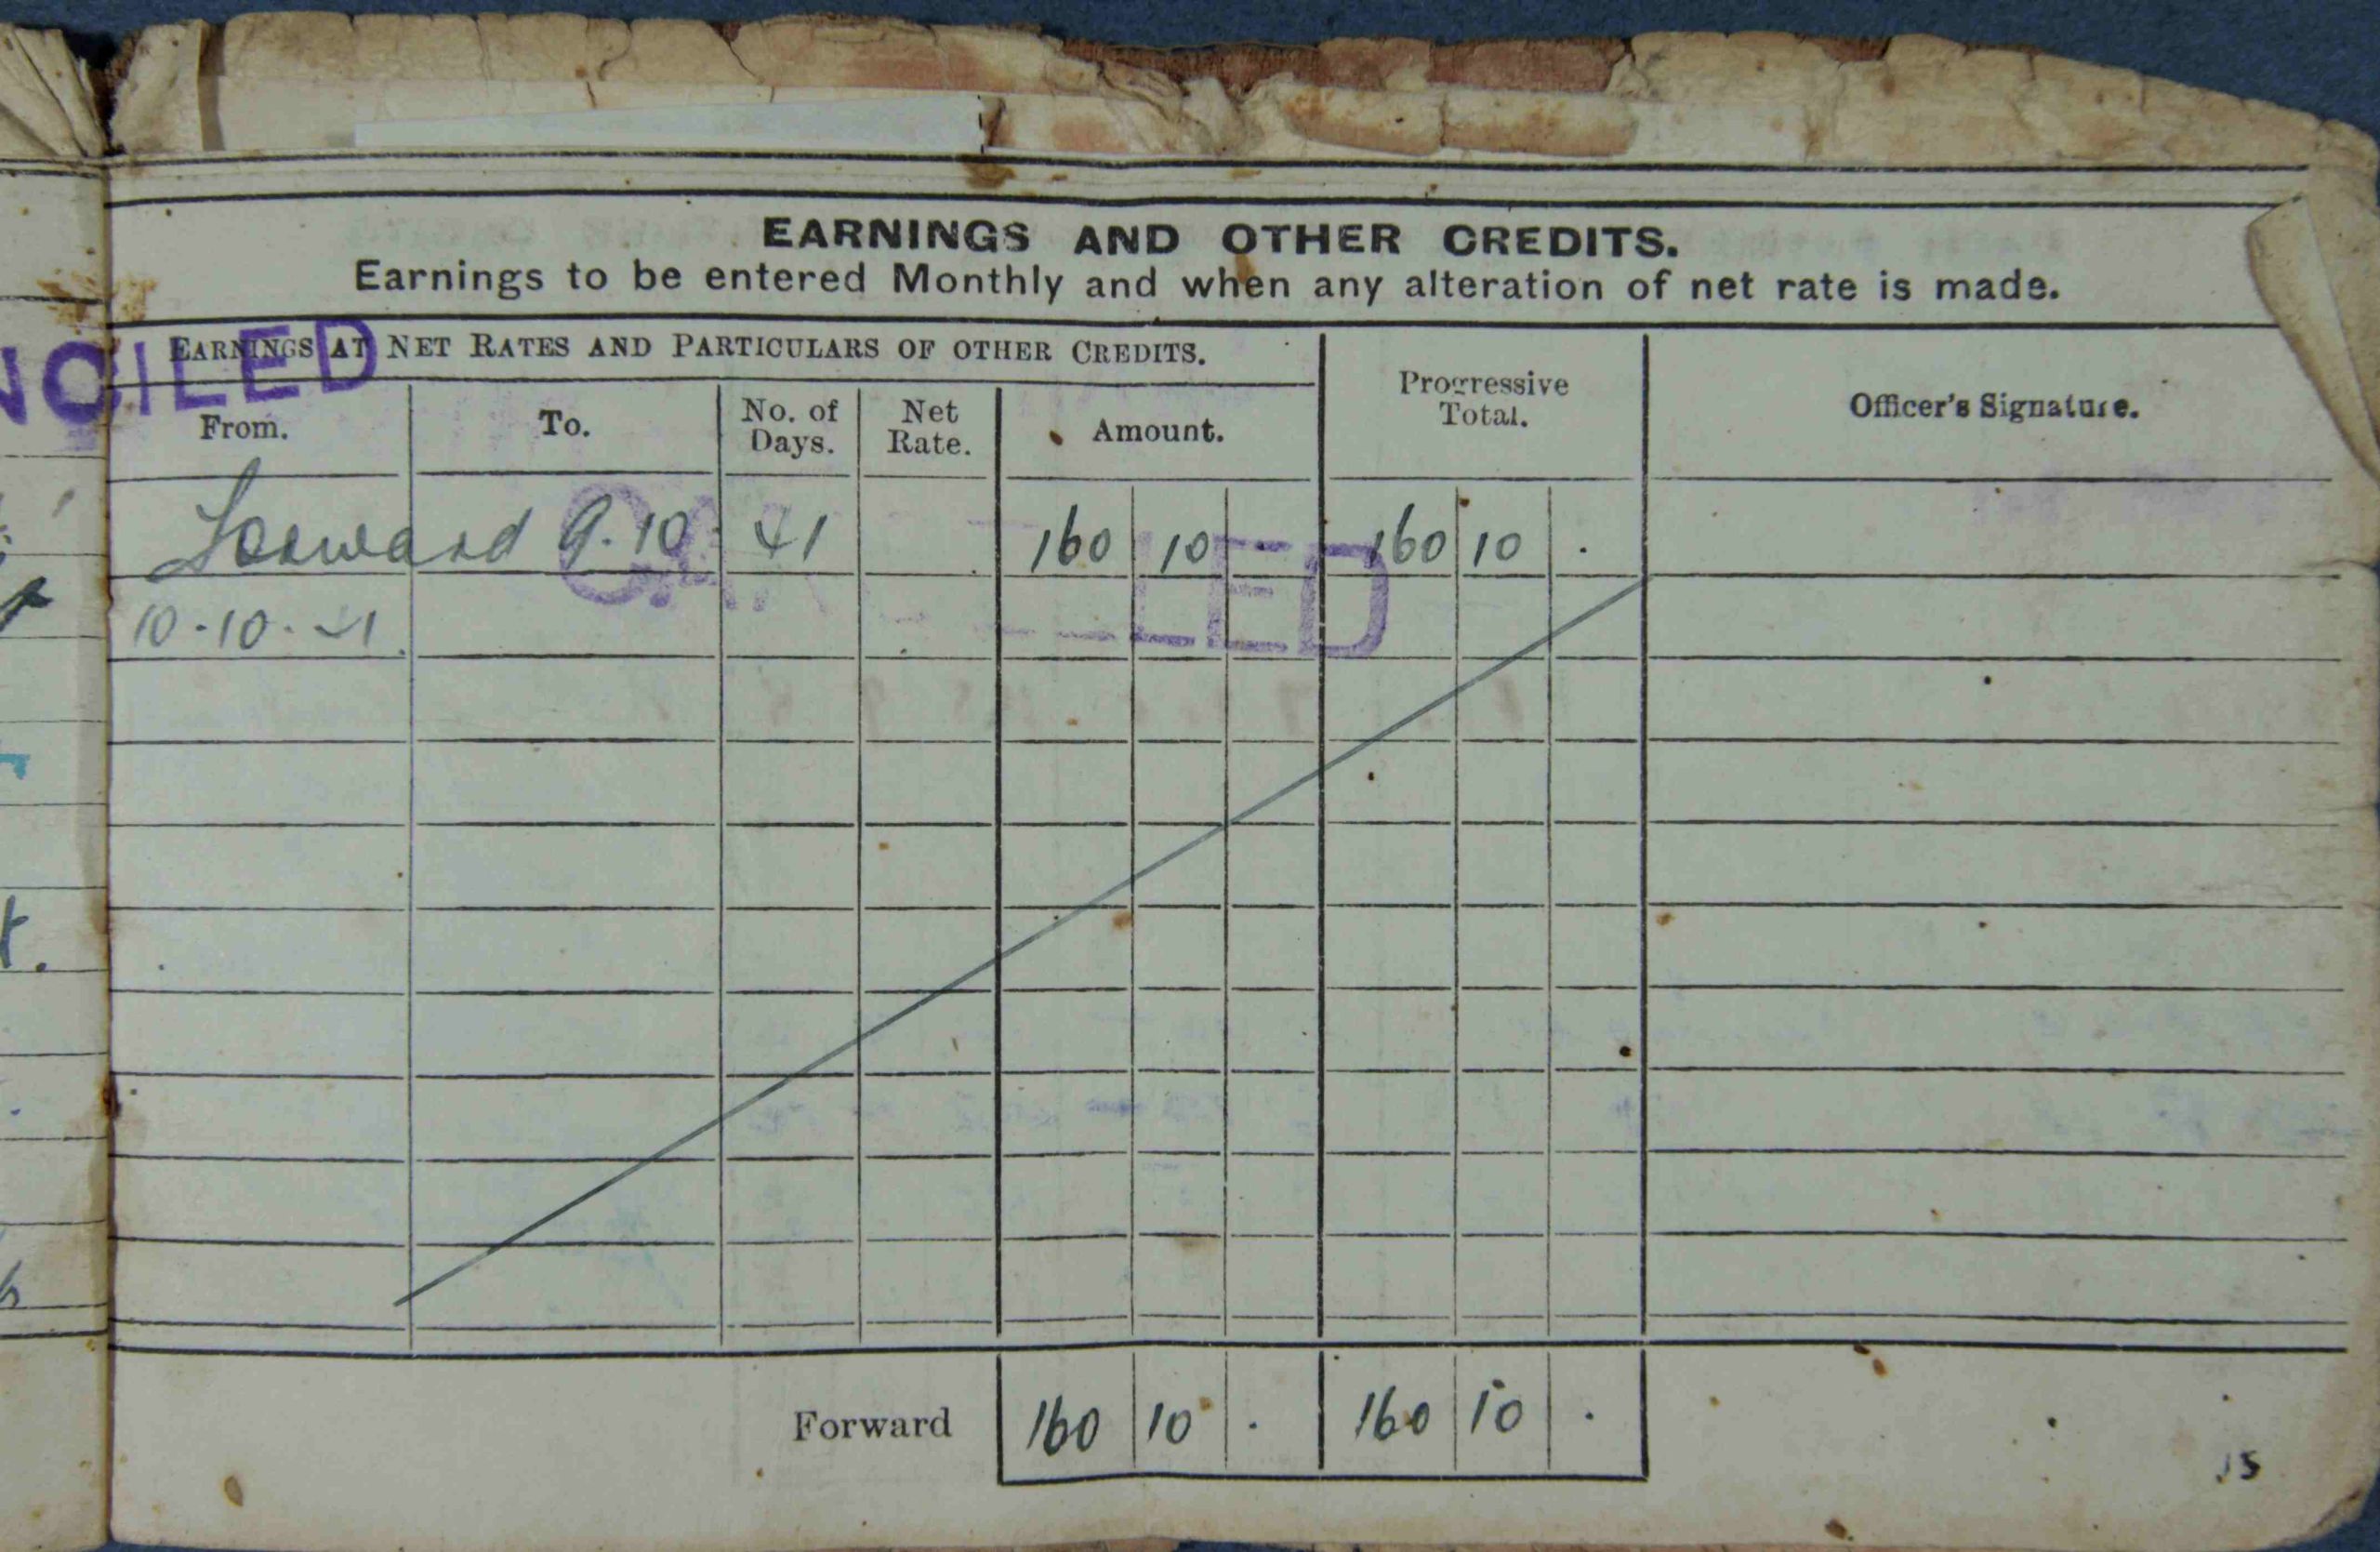 EARNINGS AND OTHER CREDITS.
Earnings to be entered Monthly and when any alteration of net rate is made.
NCILED
EARNINGS AT NET RATES AND PARTICULARS OF OTHER CREDITS.
Progressive Total.
Officer's Signature.
From. To. No. of Days. Net Rate. Amount.
Forward 9.10. 41 160 10 . 160 10 .
CAN LED
10.10.41
Forward 160 10 . 160 10 .
15